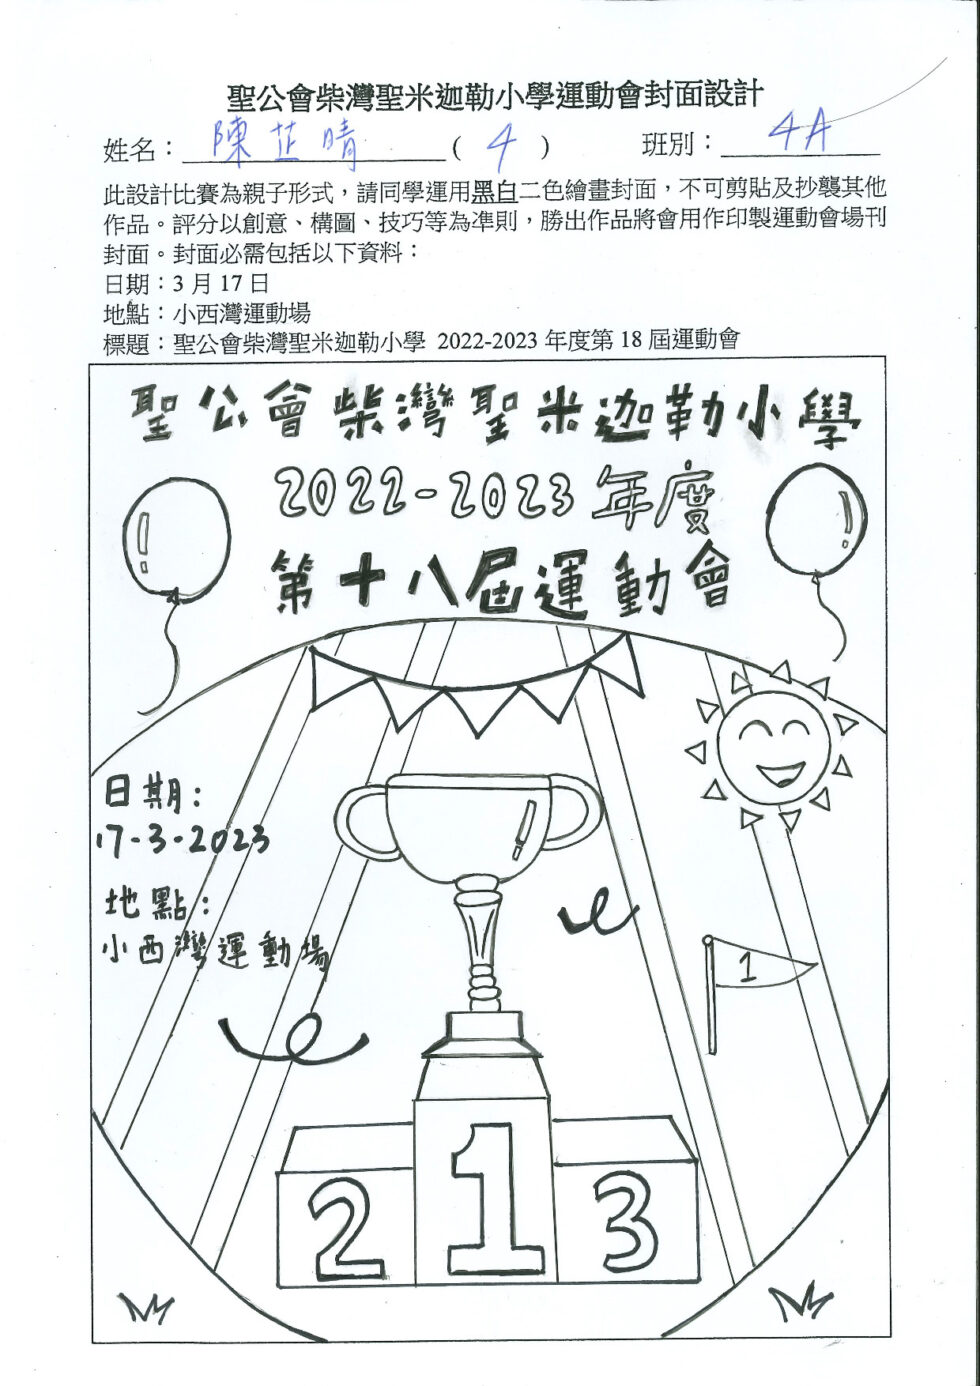 聖公會柴灣聖米迦勒小學運動會封面設計
姓名：陳芷晴 ( 4 ) 班別：4A
此設計比賽為親子形式，請同學運用黑白二色繪畫封面，不可剪貼及抄襲其他
作品。評分以創意、構圖、技巧等為準則，勝出作品將會用作印製運動會場刊
封面。封面必需包括以下資料：
日期：3 月 17 日
地點：小西灣運動場
標題：聖公會柴灣聖米迦勒小學 2022-2023 年度第 18 屆運動會
聖公會柴灣聖米迦勒小學
2022-2023 年度
第十八屆運動會
日期:
17-3-2023
地點:
小西灣運動場
1
1
2
3